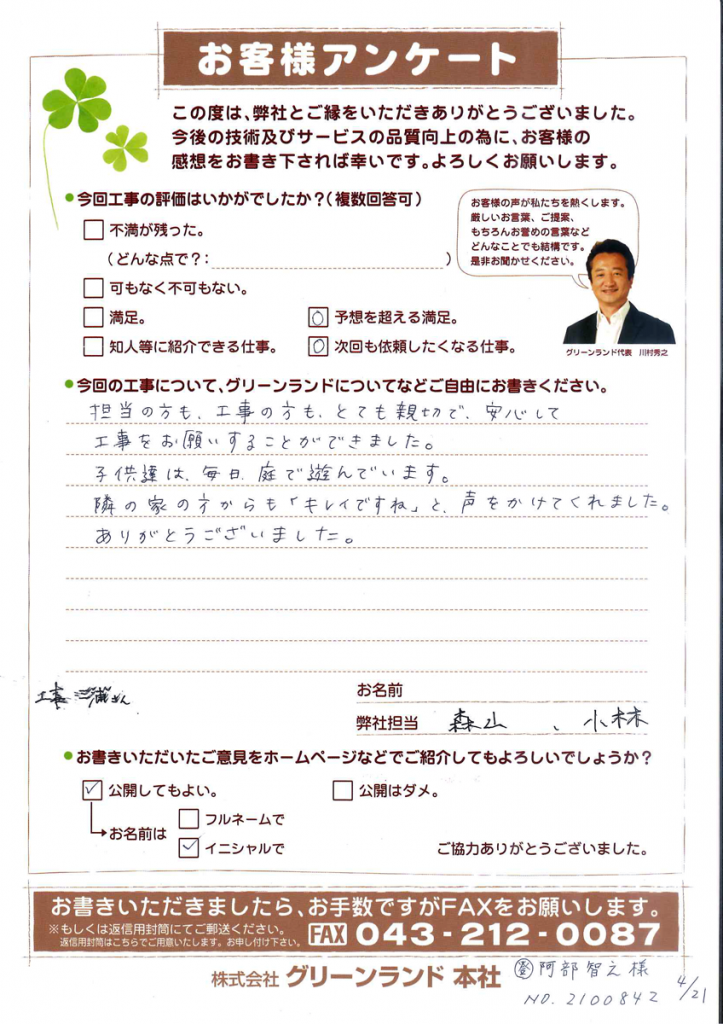 お客様アンケート
この度は、弊社とご縁をいただきありがとうございました。
今後の技術及びサービスの品質向上の為に、お客様の
感想をお書き下されば幸いです。よろしくお願いします。
今回工事の評価はいかがでしたか？（複数回答可）
お客様の声が私たちを熱くします。
厳しいお言葉、ご提案、
もちろんお誉めの言葉など
どんなことでも結構です。
是非お聞かせください。
不満が残った。
（どんな点で？：）
可もなく不可もない。
満足。 予想を超える満足。
知人等に紹介できる仕事。 次回も依頼したくなる仕事。
グリーンランド代表 川村秀之
今回の工事について、グリーンランドについてなどご自由にお書きください。
担当の方も、工事の方も、とても親切で、安心して
工事をお願いすることができました。
子供達は、毎日、庭で遊んでいます。
隣の家の方からも「キレイですね」と、声をかけてくれました。
ありがとうございました。
お名前
工事 三浦さん
弊社担当 森山、小林
お書きいただいたご意見をホームページなどでご紹介してもよろしいでしょうか？
公開してもよい。 公開はダメ。
お名前は フルネームで
イニシャルで
ご協力ありがとうございました。
お書きいただきましたら、お手数ですがFAXをお願いします。
※もしくは返信用封筒にてご郵送ください。
返信用封筒はこちらでご用意いたします。お申し付け下さい。
FAX 043-212-0087
株式会社 グリーンランド 本社
阿部智之様
NO. 2100842
4/21